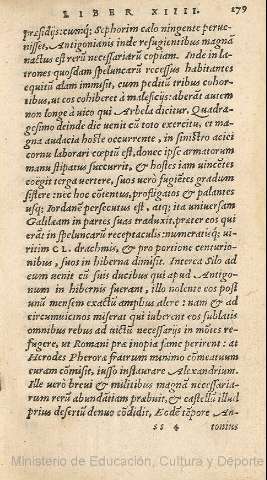 LIBER XIIII. 279
præsidijs: cumq; Sephorim calo ningente peruenisset,
Antigonianis inde refugientibus magnã
nactus est rerũ necessariarũ copiam. Inde in latrones
quosdam speluncarũ recessus habitantes
equitũ alam immisit, cum peditũ tribus cohortibus,
ut eos cohiberet à maleficijs: aberãt autem
non longe à uico qui Arbela dicitur. Quadragesimo
deinde die uenit cũ toto exercitu, et magna
audacia hoste occurrente, in sinistro aciei
cornu laborari coeptũ est, donec ipse armatorum
manu stipatus succurrit, & hostes iam uincẽtes
coëgit terga uertere, suos uerò fugiẽtes gradum
sistere: nec hoc cõtentus, profligatos & palantes
usq; Iordanẽ persecutus est, atq; ita uniuersam
Galilæam in partes suas traduxit, præter eos qui
erãt in speluncarũ receptaculis: numeratisq; uiritim
CL. drachmis, & pro portione centurionibus,
suos in hiberna dimisit. Interea Silo ad
eum uenit cũ suis ducibus qui apud Antigonum
in hibernis fuerant, illo nolente eos post
unũ mensem exactũ amplius alere: nam & ad
circumuicinos miserat qui iuberent eos sublatis
omnibus rebus ad uictũ necessarijs in mõtes refugere,
ut Romani præ inopia fame perirent: at
Herodes Pheroræ fratrum minimo cõmeatuum
curam cõmisit, iusso instaurare Alexandrium.
Ille uerò breui & militibus magnã necessariarum
rerũ abundãtiam præbuit, & castellũ illud
prius desertũ denuo cõdidit. Eodẽ tẽpore Antonius
ss 4
Ministerio de Educación, Cultura y Deporte